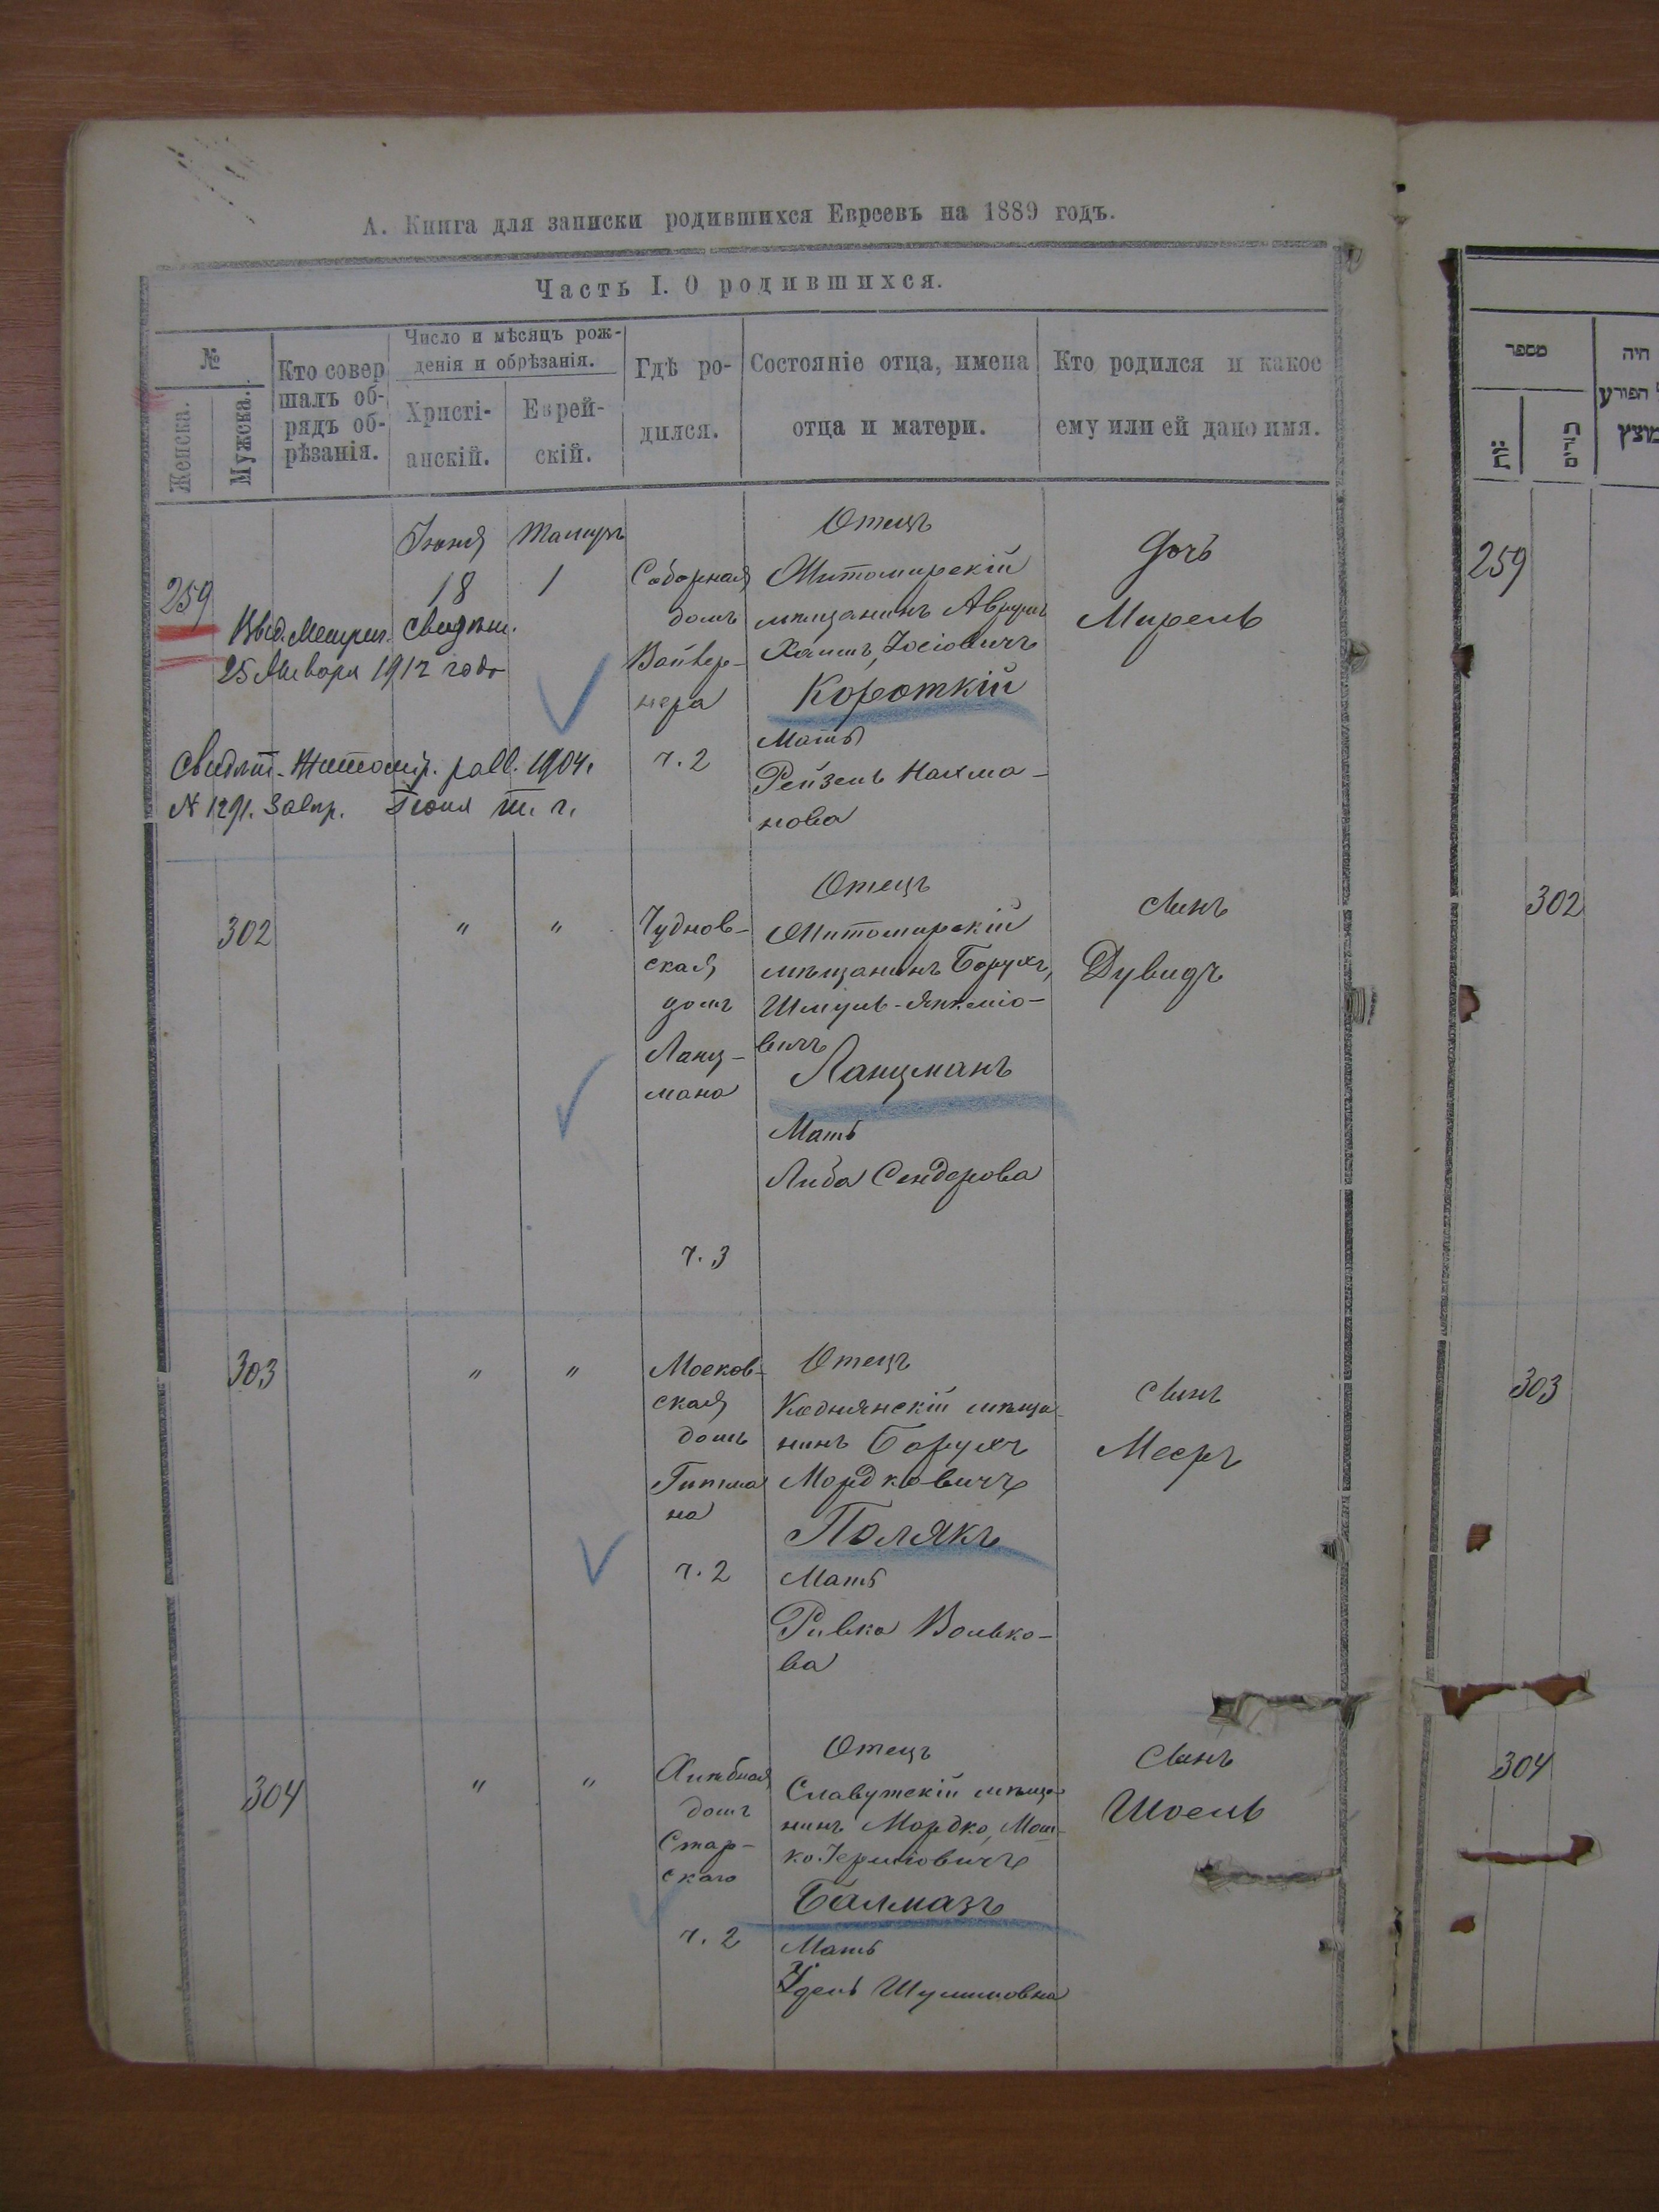 А. Книга для записки родившихся Евреевъ на 1889 годъ.
Часть I. О родившихся.
№
Женска.
Мужска.
Кто совер
шалъ об-
рядъ об-
рѣзанія.
Число и мѣсяцъ рож-
денія и обрѣзанія.
Христі-
анскій.
Еврей-
скій.
Гдѣ ро-
дился.
Состояніе отца, имена
отца и матери.
Кто родился и какое
ему или ей дано имя.
259
Іюня
18
Тамузъ
1
Выд. Метрич. Свидѣт.
25 Января 1912 года
Свидѣт. Житомір. равв. 1904.
N 1291. Завѣр. Іюня т. г.
Соборная
домъ
Вайнер-
нера
ч. 2
Отецъ
Житомирскій
мѣщанинъ Аврумъ
Хаимъ, Іосіовичъ
Короткій
Мать
Рейзель Нахма-
нова
Дочь
Мирель
302
"
"
Чуднов-
ская
домъ
Ланц-
мана
ч. 3
Отецъ
Житомирскій
мѣщанинъ Борухъ,
Шмуль-Янкеліо-
вичъ
Ланцманъ
Мать
Либа Сендерова
Сынъ
Дувидъ
303
"
"
Москов-
ская
домъ
Гитма
на
ч. 2
Отецъ
Коднянскій мѣща-
нинъ Борухъ
Мордковичъ
Полякъ
Мать
Ривка Волько-
ва
Сынъ
Мееръ
304
"
"
Хлѣбная
домъ
Стар-
скаго
ч. 2
Отецъ
Славутскій мѣща-
нинъ Мордко, Мош-
ко
Балмазъ
Мать
Удель Шулимовна
Сынъ
Шоель
מספר
259
302
303
304